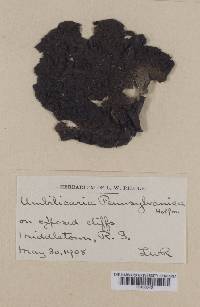 HERBARIUM OF L. W. RIDDLE
Umbilicaria Pennsylvanica
Hoffm
on exposed cliffs
Middletown, R. I.
May 30, 1908 LWR